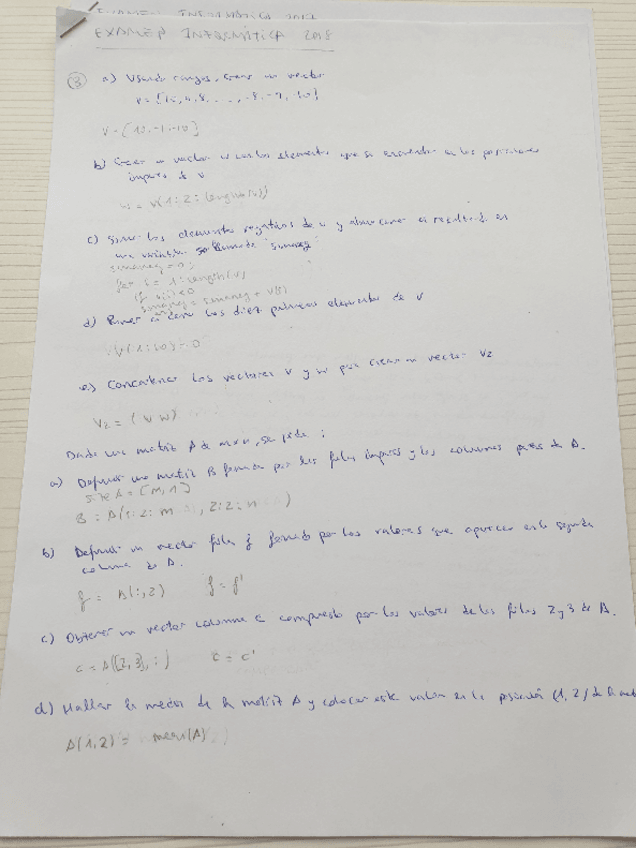 EXAMEN INFORMÁTICA 2018
3 a) Usando rangos, crear un vector
v = [10, 9, 8, ..., -8, -9, -10]
V = [10:-1:-10]
b) Crear un vector w con los elementos que se encuentran en las posiciones
impares de v
w = v(1:2:length(v))
c) Sumar los elementos negativos de v y almacenar el resultado en
una variable llamada "sumaneg"
sumaneg = 0;
for i = 1:length(v)
if v(i)<0
sumaneg = sumaneg + v(i)
d) Poner a cero los diez primeros elementos de v
V(1:10) = 0
e) Concatenar los vectores v y w para crear un vector V2
V2 = (v w)
Dada una matriz A de mxn, se pide:
a) Definir una matriz B formada por las filas impares y las columnas pares de A.
size A = [m, n]
B = A(1:2:m, 2:2:n)
b) Definir un vector fila f formado por los valores que aparecen en la segunda
columna de A.
f = A(:,2) f = f'
c) Obtener un vector columna c compuesto por los valores de las filas 2 y 3 de A.
c = A([2,3],:) c = c'
d) Hallar la media de la matriz A y colocar este valor en la posición (1,2) de la
A(1,2) = mean(A)